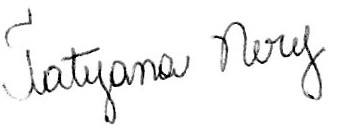 Tatyana Nery